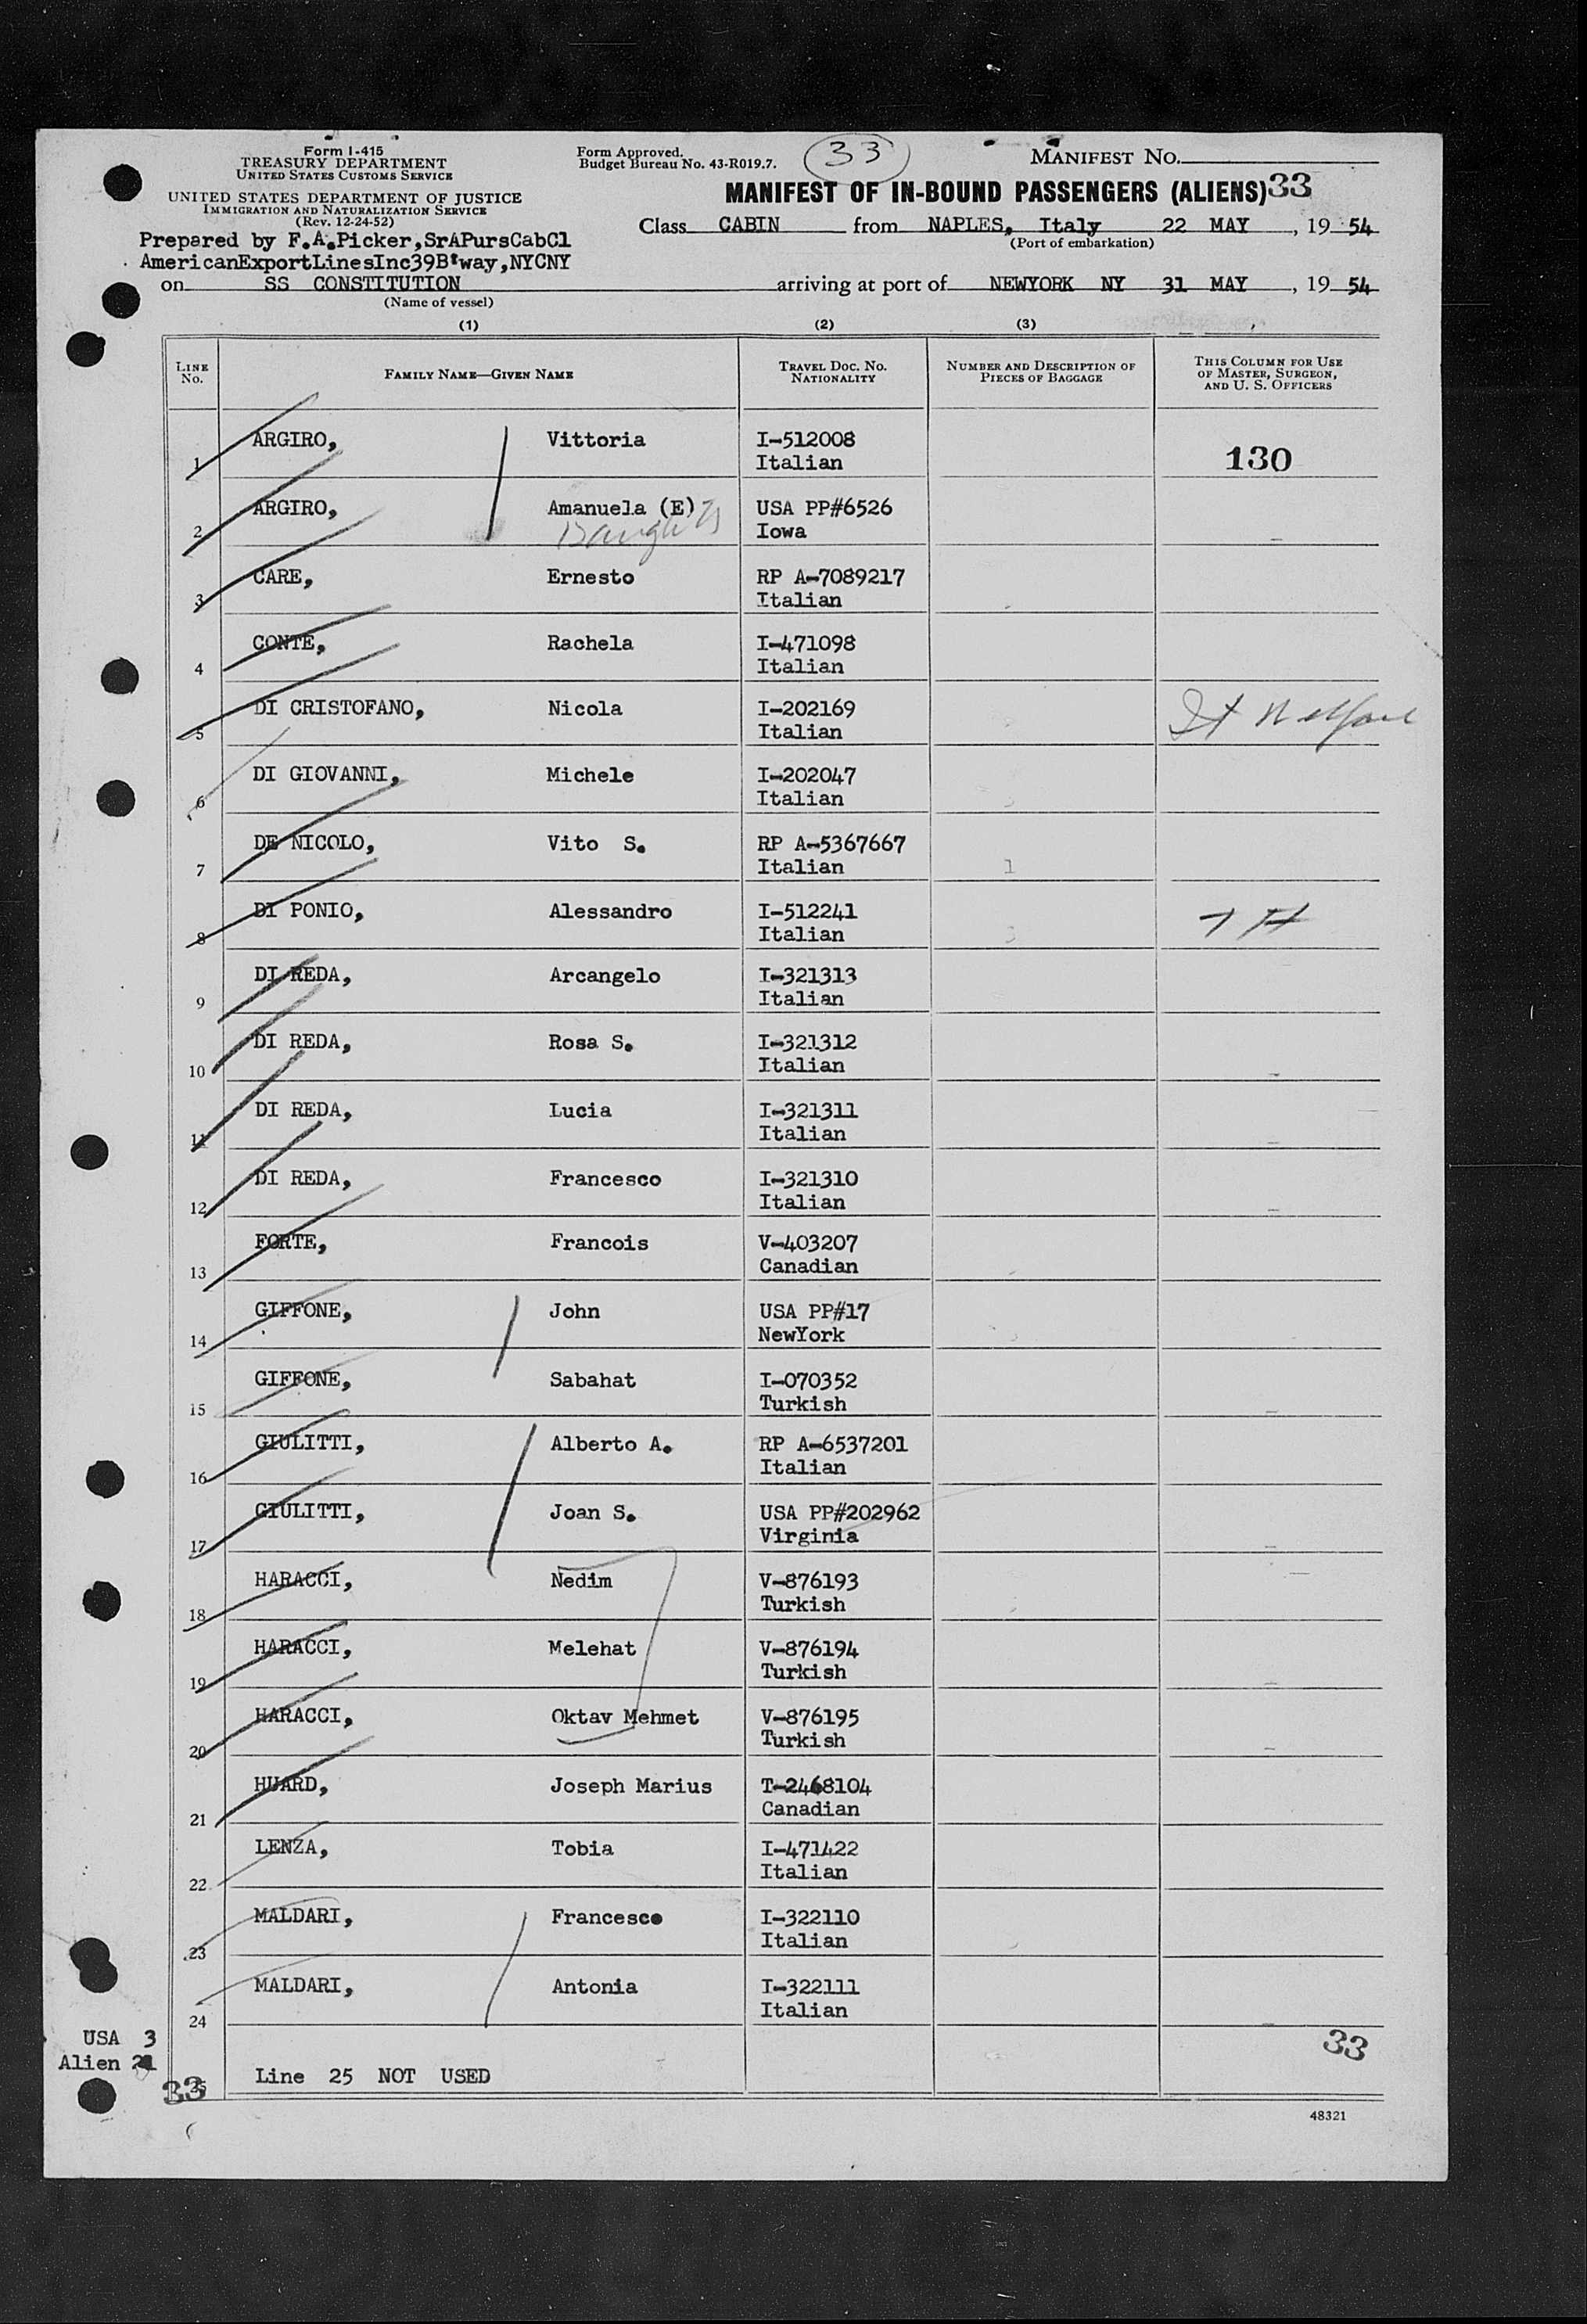 Form I-415
TREASURY DEPARTMENT
UNITED STATES CUSTOMS SERVICE
UNITED STATES DEPARTMENT OF JUSTICE
IMMIGRATION AND NATURALIZATION SERVICE
(Rev. 12-24-52)
Form Approved.
Budget Bureau No. 43-R019.7.
33
MANIFEST NO.
MANIFEST OF IN-BOUND PASSENGERS (ALIENS) 33
Class CABIN from NAPLES, Italy 22 MAY, 19 54
(Port of embarkation)
Prepared by F.A.Picker,SrAPursCabCl
AmericanExportLinesInc39B'way,NYCNY
on SS CONSTITUTION arriving at port of NEWYORK NY 31 MAY, 19 54
(Name of vessel)
(1) (2) (3)
LINE No. FAMILY NAME—GIVEN NAME TRAVEL DOC. NO. NATIONALITY NUMBER AND DESCRIPTION OF PIECES OF BAGGAGE THIS COLUMN FOR USE OF MASTER, SURGEON, AND U. S. OFFICERS
1 ARGIRO, Vittoria I-512008 130
Italian
2 ARGIRO, Amanuela (E) USA PP#6526
Iowa
3 CARE, Ernesto RP A-7089217
Italian
4 CONTE, Rachela I-471098
Italian
5 DI CRISTOFANO, Nicola I-202169
Italian
6 DI GIOVANNI, Michele I-202047
Italian
7 DE NICOLO, Vito S. RP A-5367667
Italian 1
8 DI PONIO, Alessandro I-512241
Italian
9 DI REDA, Arcangelo I-321313
Italian
10 DI REDA, Rosa S. I-321312
Italian
11 DI REDA, Lucia I-321311
Italian
12 DI REDA, Francesco I-321310
Italian
13 FORTE, Francois V-403207
Canadian
14 GIFFONE, John USA PP#17
NewYork
15 GIFFONE, Sabahat I-070352
Turkish
16 GIULITTI, Alberto A. RP A-6537201
Italian
17 GIULITTI, Joan S. USA PP#202962
Virginia
18 HARACCI, Nedim V-876193
Turkish
19 HARACCI, Melehat V-876194
Turkish
20 HARACCI, Oktav Mehmet V-876195
Turkish
21 HUARD, Joseph Marius T-2468104
Canadian
22 LENZA, Tobia I-471422
Italian
23 MALDARI, Francesco I-322110
Italian
24 MALDARI, Antonia I-322111
Italian
USA 3
Alien 21
33
33 Line 25 NOT USED
48321